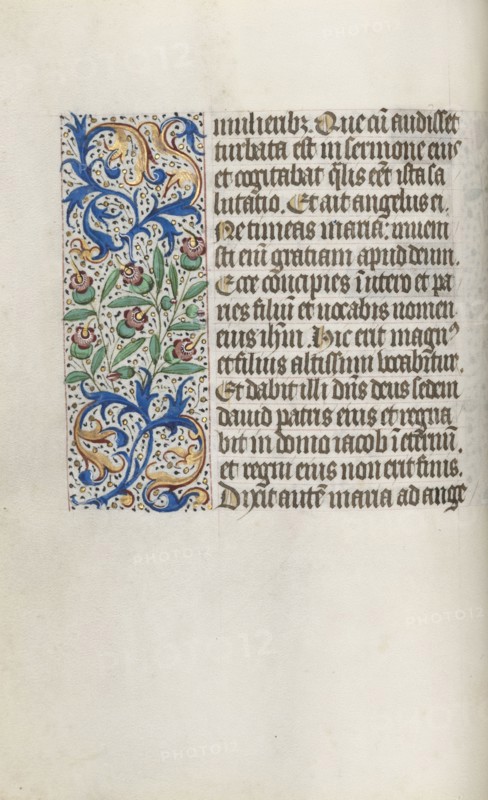 mulieribꝫ. Que cū audisset
turbata est in sermone eius
et cogitabat q̄lis eēt ista sa
lutatio. Et ait angelus ei.
Ne timeas maria: inueni
sti eni͂ gratiam apud deum.
Ecce concipies ī utero et pa
ries filiū et uocabis nomen
eius ihm̄. Hic erit magnꝰ
et filius altissimi vocabitur.
Et dabit illi dn̄s deus sedem
dauid patris eius et regna
bit in domo iacob ī eternū.
et regni eius non erit finis.
Dixit autē maria ad ange
PHOTO12
PHOTO12
PHOTO12
PHOTO12
PHOTO12
PHOTO12